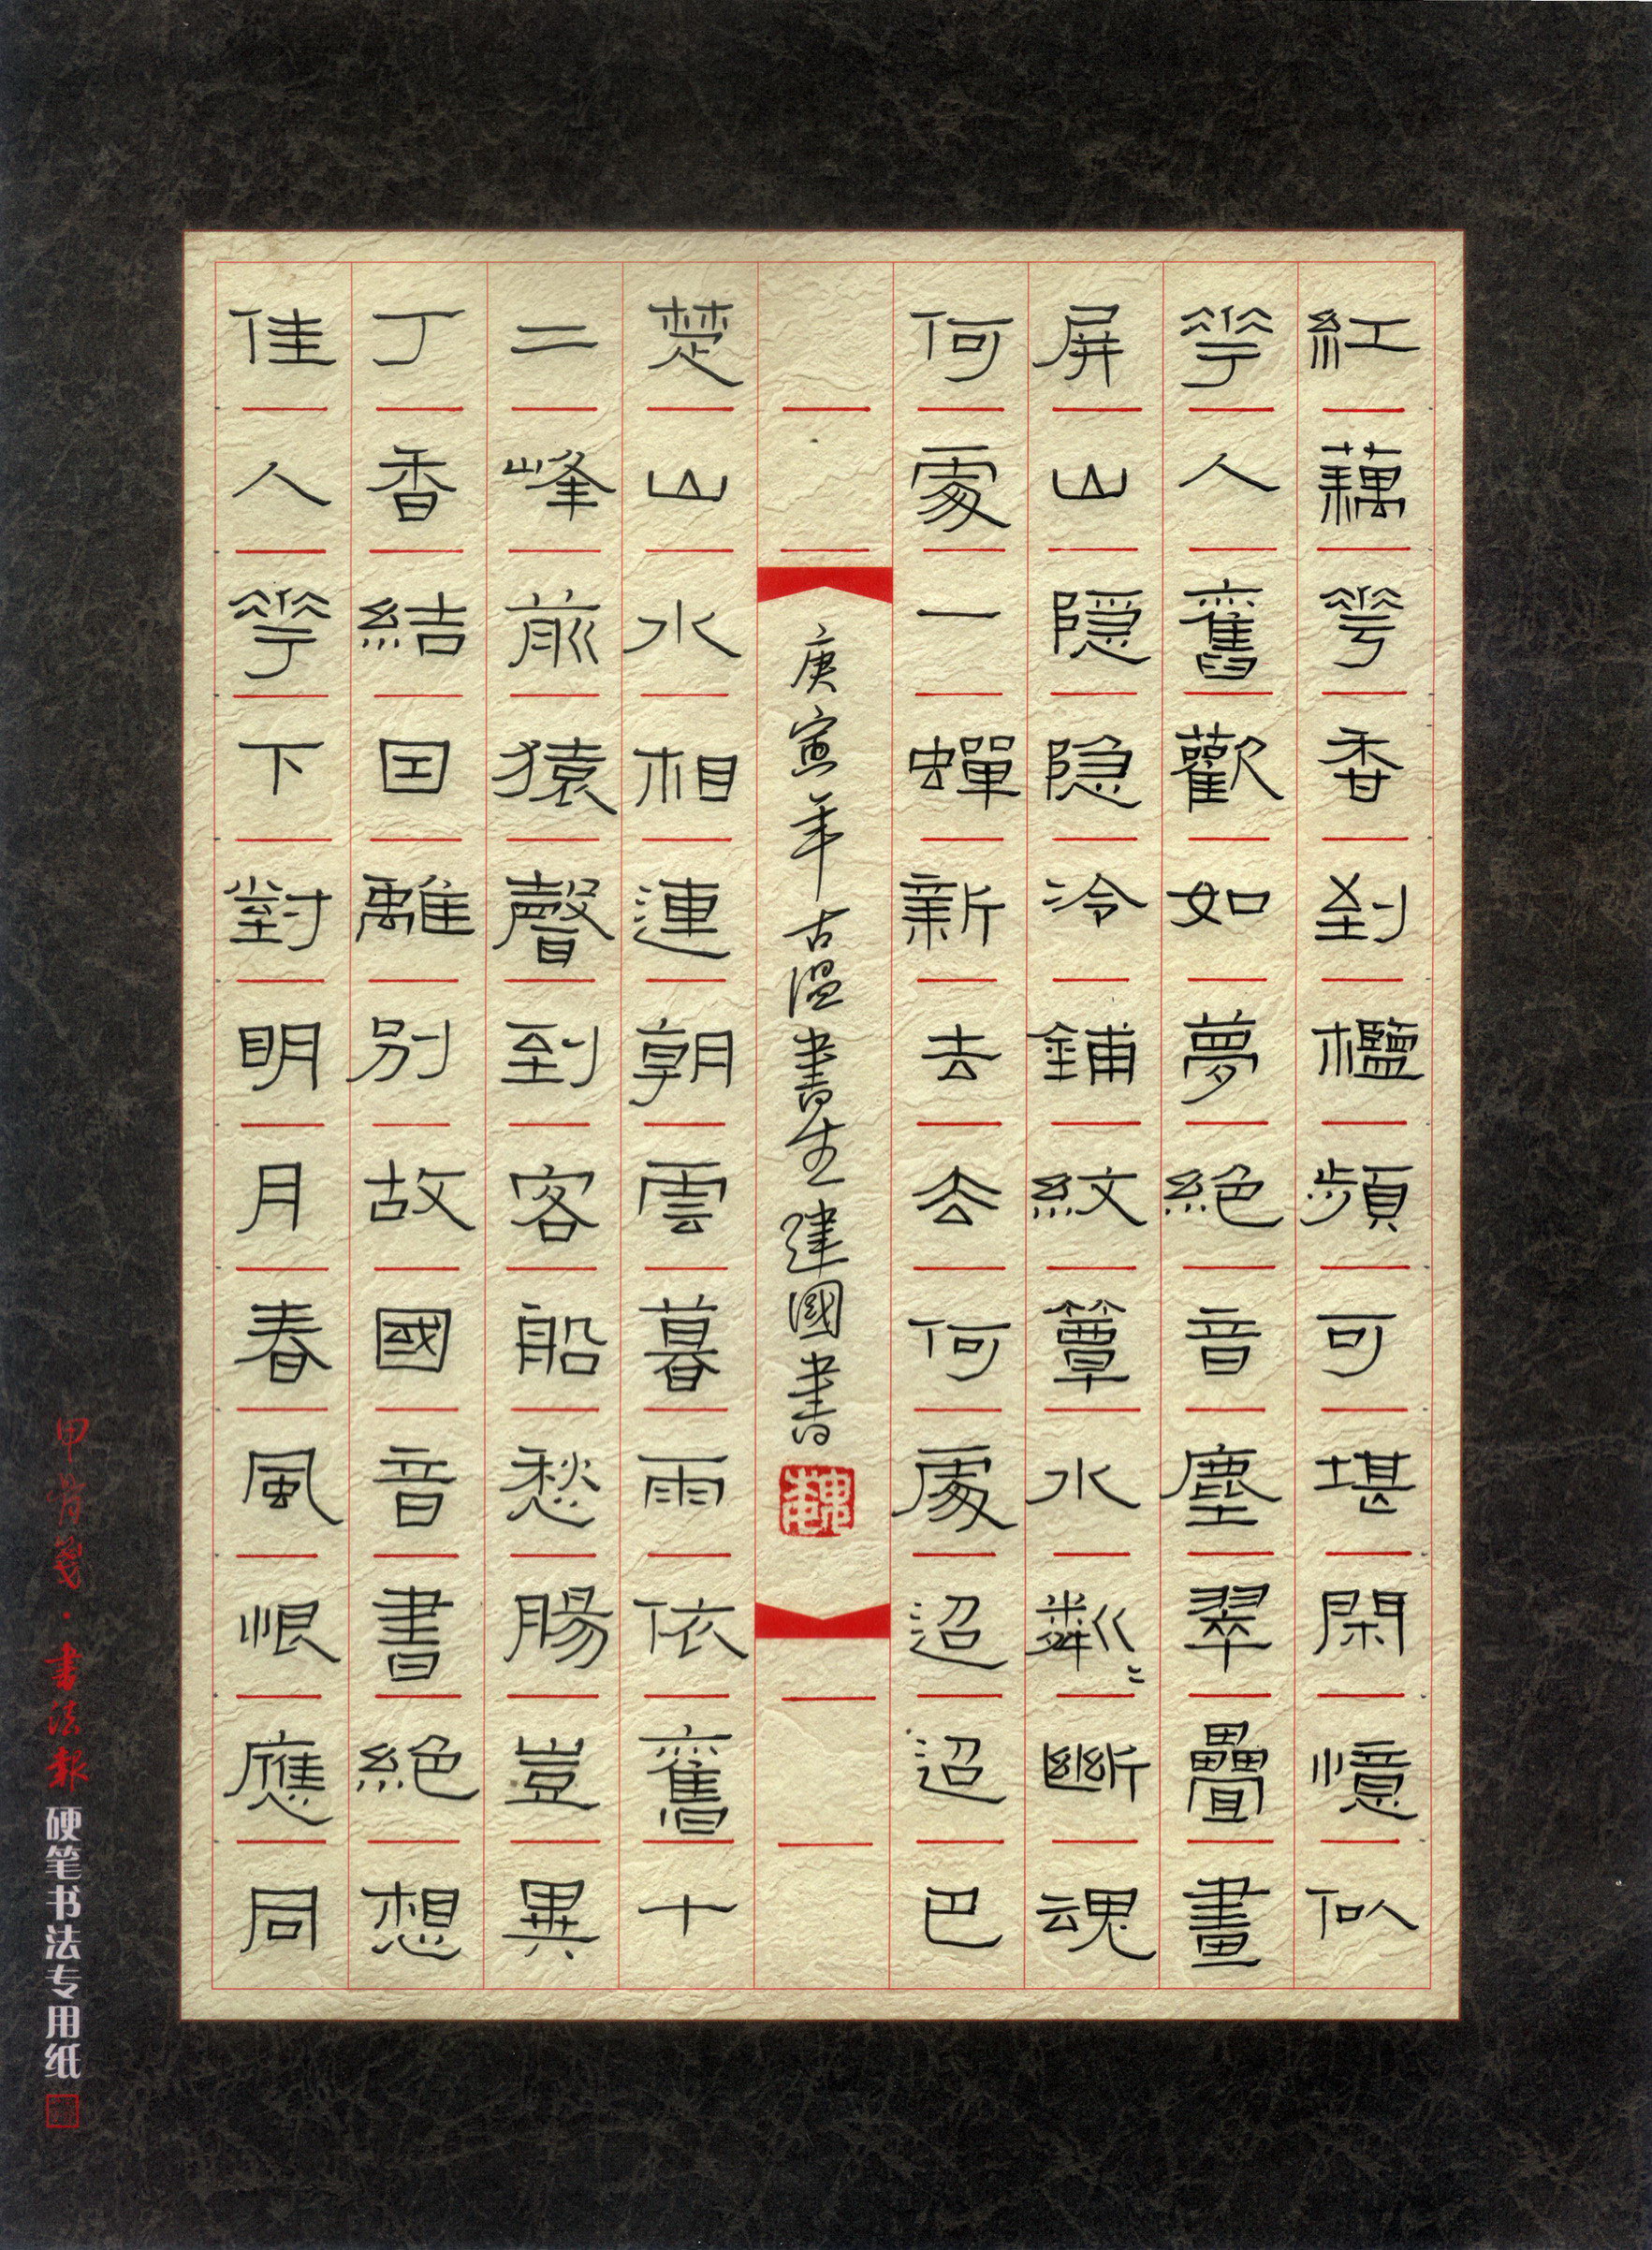 紅藕花香到檻頻可堪閑憶似
花人舊歡如夢絕音塵翠疊畫
屏山隱隱冷鋪紋簟水粼〻斷魂
何處一蟬新去去何處迢迢巴
庚寅年古溫書生建國書
楚山水相連朝雲暮雨依舊十
二峰前猿聲到客船愁腸豈異
丁香結因離別故國音書絕想
佳人花下對明月春風恨應同
甲骨箋·書法報硬笔书法专用纸